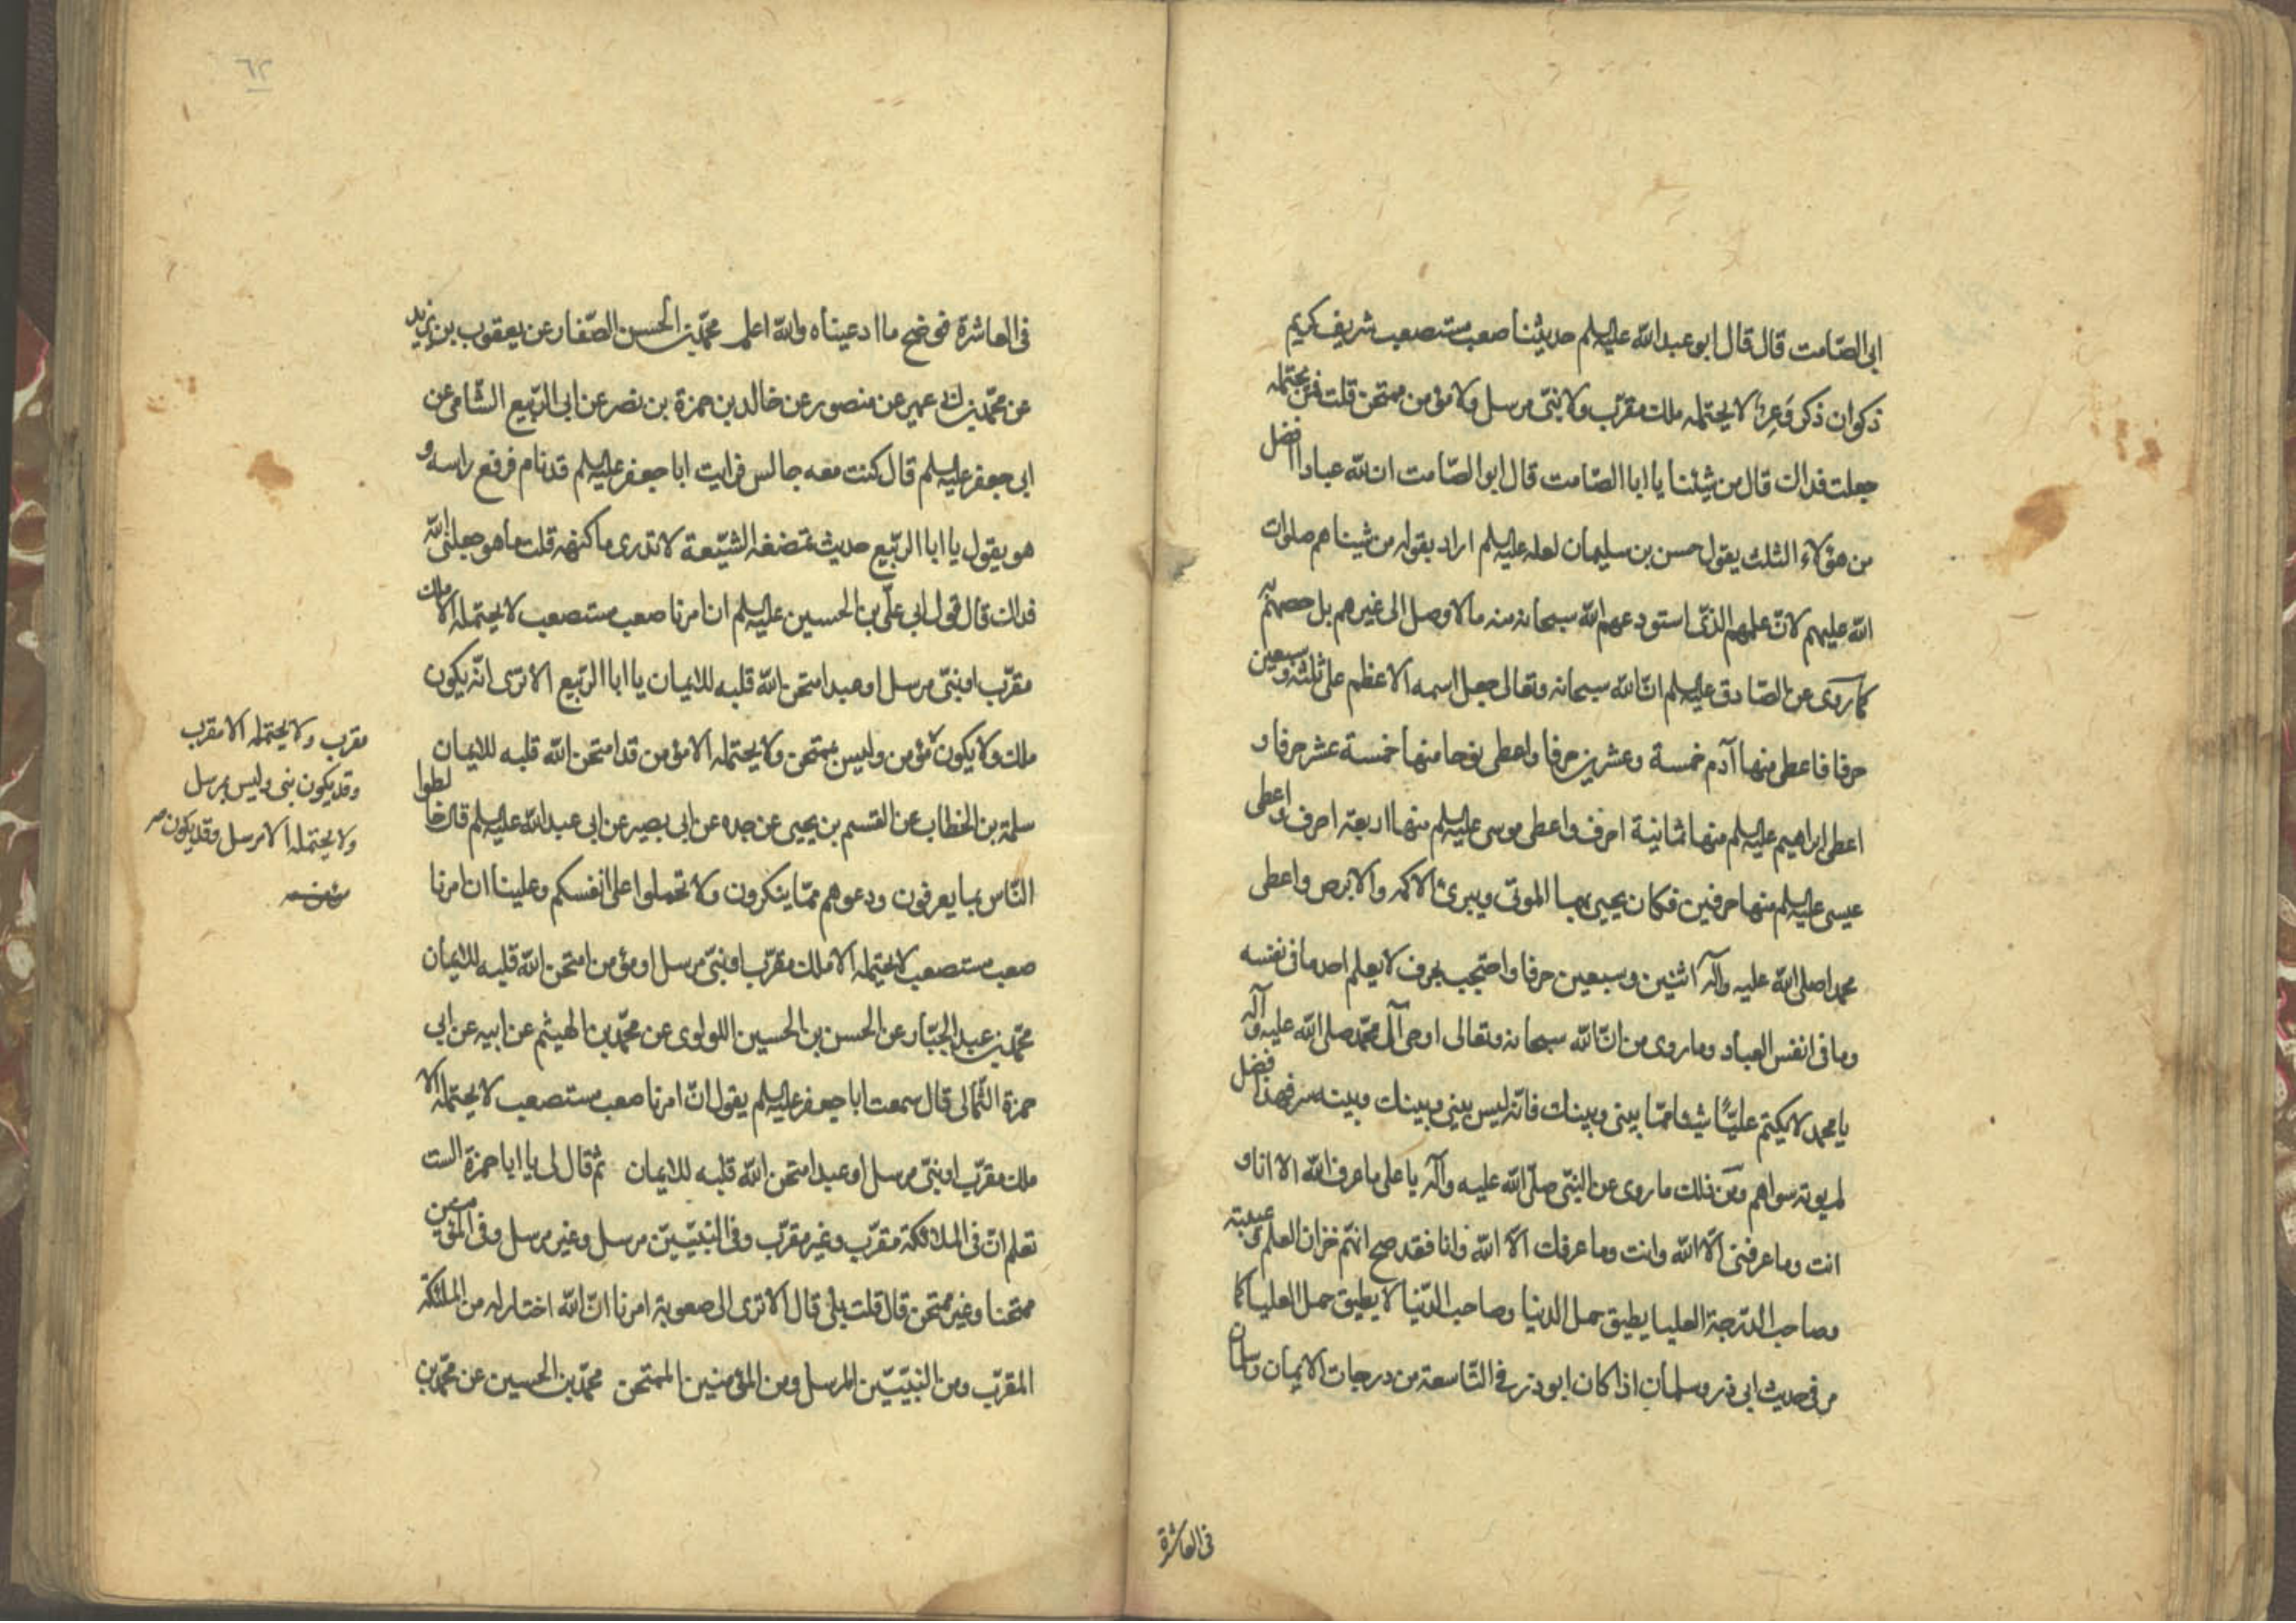 ابى الصّامت قال قال ابو عبد الله عليه السلم حديثنا صعب مستصعب شريف كريم
ذكوان ذكى وَعِرٌ لا يحتمله ملك مقرّب ولا نبىّ مرسل ولا مؤمن ممتحن قلت فمن يحتمله
جعلت فداك قال من شئنا يا ابا الصّامت قال ابو الصّامت ان لله عبادا افضل
من هؤلاء الثلث يقول حسن بن سليمان لعله عليه السلم اراد بقوله من شينا هم صلوات
الله عليهم لانّ علمهم الذى استودعهم الله سبحانه منه مالا وصل الى غيرهم بل خصهم به
كما روى عن الصّادق عليه السلم انّ الله سبحانه وتعالى جعل اسمه الاعظم على ثلثه وسبعين
حرفا فاعطى منها آدم خمسة وعشرين حرفا واعطى نوحا منها خمسة عشر حرفا و
اعطى ابراهيم عليه السلم منها ثمانية احرف واعطى موسى عليه السلم منها اربعة احرف واعطى
عيسى عليه السلم منها حرفين فكان يحيى بهما الموتى ويبرئ الاكمه والابرص واعطى
محمدا صلى الله عليه وآله اثنين وسبعين حرفا واحتجب بحرف لا يعلم احد ما فى نفسه
وما فى انفس العباد وما روى من انّ الله سبحانه وتعالى اوحى الى محمّد صلى الله عليه وآله
يا محمد لا تكتم عليّا شيئا ممّا بينى وبينك فانّه ليس بينى وبينك وبينه سر فهذا فضل
لم يوته سواهم ومن ذلك ما روى عن النبّى صلّى الله عليه وآله يا على ما عرف الله الا انا و
انت وما عرفنى الّا الله وانت وما عرفك الّا الله وانا فقد صح انهم خزان العلم وعيبته
وصاحب الدّرجة العليا يطيق حمل الدنيا وصاحب الدّنيا لا يطيق حمل العليا كما
مر فى حديث ابى ذر وسلمان اذا كان ابو ذر فى التّاسعة من درجات الايمان وسلمان
فى العاشرة
٦٢
فى العاشرة فوضح ما ادعيناه والله اعلم محمّد بن الحسن الصّفار عن يعقوب بن يزيد
عن محمّد بن ابى عمير عن منصور عن خالد بن حمزة بن نصر عن ابى الرّبيع الشّامى عن
ابى جعفر عليه السلم قال كنت معه جالس فرايت ابا جعفر عليه السلم قد نام فرفع راسه و
هو يقول يا ابا الرّبيع حديث تمضغه الشيّعة لا تدرى ما كنهه قلت ما هو جعلنى الله
فداك قال قول ابى علىّ بن الحسين عليه السلم ان امرنا صعب مستصعب لا يحتمله الا ملك
مقرّب او نبىّ مرسل او عبد امتحن الله قلبه للايمان يا ابا الرّبيع الا ترى انّه يكون
ملك ولا يكون مؤمن وليس بممتحن ولا يحتمله الا مؤمن قد امتحن الله قلبه للايمان
سلمة بن الخطاب عن القسم بن يحيى عن جده عن ابى بصير عن ابى عبد الله عليه السلم قال خالطوا
النّاس بما يعرفون ودعوهم ممّا ينكرون ولا تحملوا على انفسكم وعلينا ان امرنا
صعب مستصعب لا يحتمله الا ملك مقرّب او نبىّ مرسل او مؤمن امتحن الله قلبه للايمان
محمّد بن عبد الجبّار عن الحسن بن الحسين اللولوى عن محمّد بن الهيثم عن ابيه عن ابى
حمزة الثّمالى قال سمعت ابا جعفر عليه السلم يقول انّ امرنا صعب مستصعب لا يحتمله الا
ملك مقرّب او نبىّ مرسل او عبد امتحن الله قلبه للايمان ثم قال لى يا ابا حمزة الست
تعلم انّ فى الملائكة مقرّب وغير مقرّب وفى النّبيّين مرسل وغير مرسل وفى المؤمنين
ممتحنا وغير ممتحن قال قلت بلى قال الا ترى الى صعوبة امرنا انّ الله اختار له من الملئكة
المقرّب ومن النّبيّين المرسل ومن المؤمنين الممتحن محمّد بن الحسين عن محمّد بن
مقرب ولا يحتمله الا مقرب
وقد يكون نبى وليس بمرسل
ولا يحتمله الا مرسل وقد يكون
مؤمن